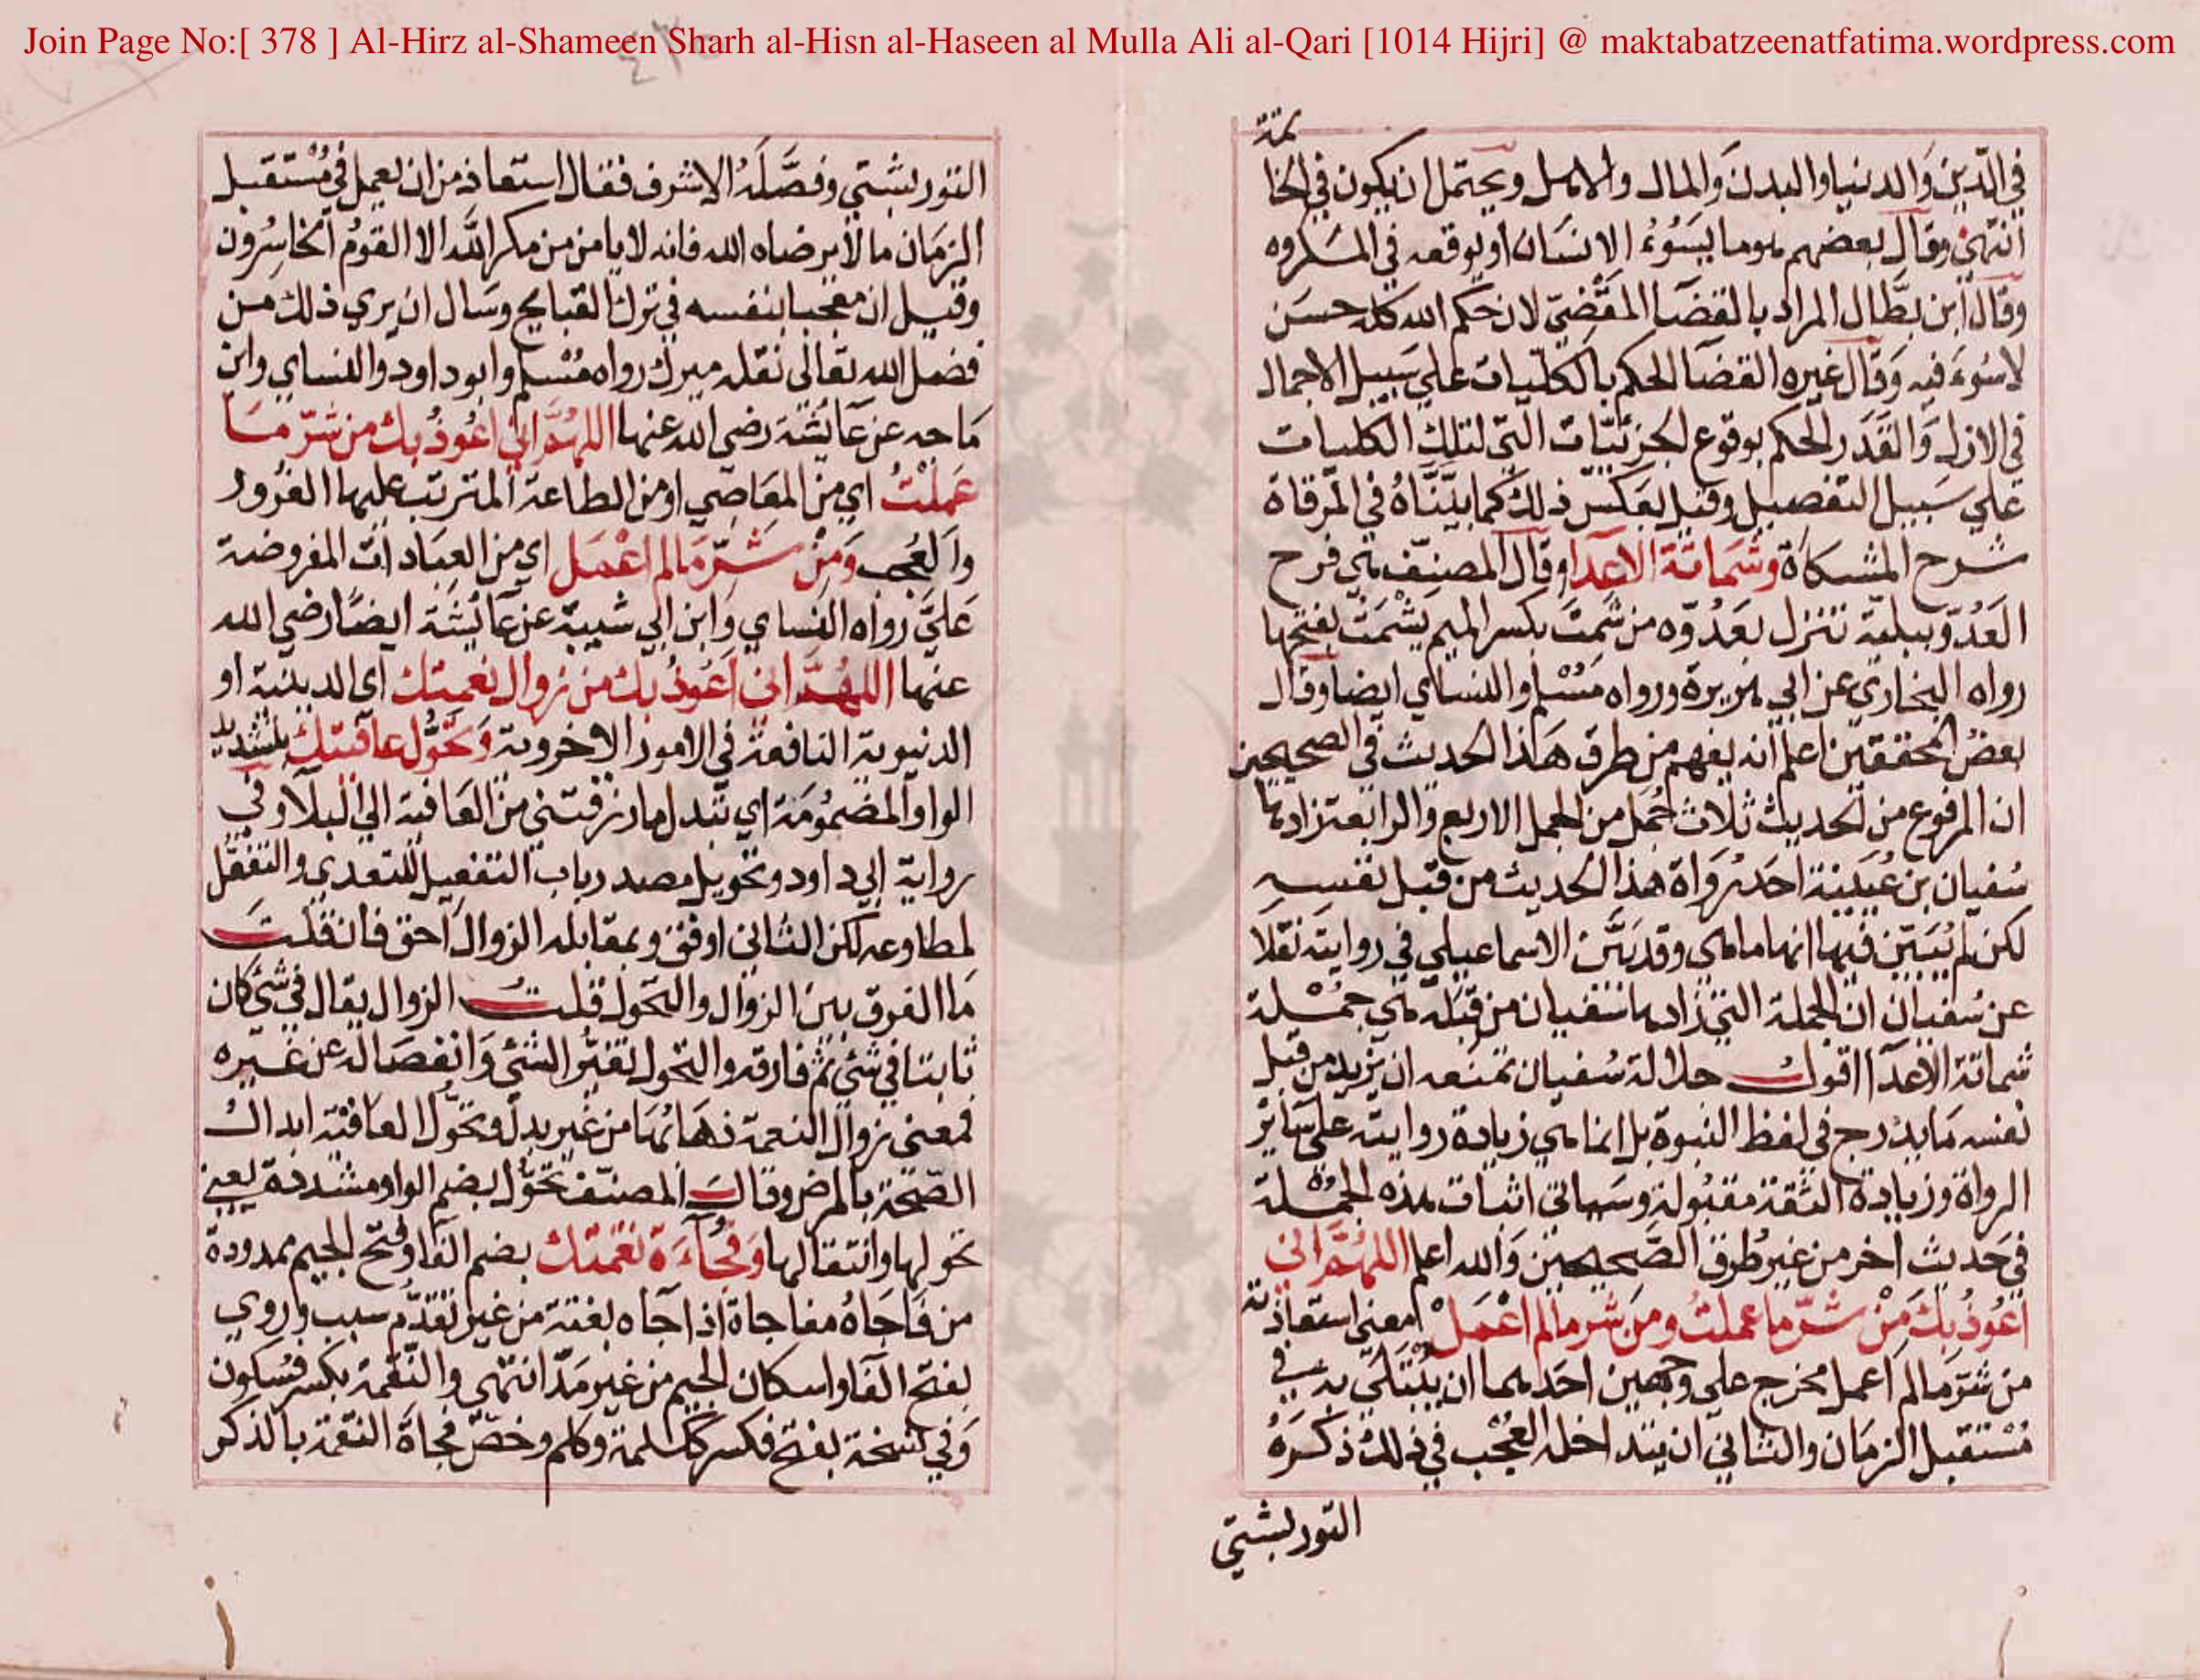 Join Page No:[ 378 ] Al-Hirz al-Shameen Sharh al-Hisn al-Haseen al Mulla Ali al-Qari [1014 Hijri] @ maktabatzeenatfatima.wordpress.com
في الدين والدنيا والبدن والمال والاهل ويحتمل ان يكون في الخا
تمة
انتهى وقال بعضهم هو ما يسوء الانسان او يوقعه في المكروه
وقال ابن بطال المراد بالقضا المقضي لان حكم الله كله حسن
لا سوء فيه وقال غيره القضا الحكم بالكليات علي سبيل الاجمال
في الازل والقدر الحكم بوقوع الجزئيات التي لتلك الكليات
علي سبيل التفصيل وقيل بعكس ذلك كما بيناه في المرقاة
شرح المشكاة وشماتة الاعدا وقال المصنف هي فرح
العدو ببلية تنزل بعدوه من شمت بكسر الميم يشمت بفتحها
رواه البخاري عن ابي هريرة ورواه مسلم والنساي ايضا وقال
بعض المحققين اعلم انه يفهم من طرق هذا الحديث في الصحيحين
ان المرفوع من الحديث ثلاث جمل من الجمل الاربع والرابعة زادها
سفيان بن عيينة احد رواة هذا الحديث من قبل نفسه
لكن لم يبين فيها انها ما هي وقد بين الاسماعيلي في روايته نقلا
عن سفيان ان الجملة التي زادها سفيان من قبله هي جملة
شماتة الاعدا اقول جلالة سفيان تمنعه ان يزيد من قبل
نفسه ما يدرج في لفظ النبوة بل انما هي زيادة روايته علي ساير
الرواة وزيادة الثقة مقبولة وسياتي اثبات هذه الجملة
في حديث اخر من غير طرق الصحيحين والله اعلم اللهم اني
اعوذ بك من شر ما عملت ومن شر ما لم اعمل معني استعاذته
من شر ما لم اعمل مخرج علي وجهين احدهما ان يبتلي به في
مستقبل الزمان والثاني ان يتداخله العجب في ذلك ذكره
التوربشتي
التوربشتي وفصله الاشرف فقال استعاذ من ان يعمل في مستقبل
الزمان ما لا يرضاه الله فانه لا يامن من مكر الله الا القوم الخاسرون
وقيل ان معجبا بنفسه في ترك القبايح وسال ان يري ذلك من
فضل الله تعالي نقله ميرك رواه مسلم وابو داود والنساي وابن
ماجه عن عايشة رضي الله عنها اللهم اني اعوذ بك من شر ما
عملت اي من المعاصي او من الطاعة المترتب عليها الغرور
والعجب ومن شر ما لم اعمل اي من العبادات المفروضة
علي رواه النساي وابن ابي شيبة عن عايشة ايضا رضي الله
عنها اللهم اني اعوذ بك من زوال نعمتك اي الدينية او
الدنيوية النافعة في الامور الاخروية وتحول عافيتك بتشديد
الواو المضمومة اي تبدل ما رزقتني من العافية الي البلا وفي
رواية ابي داود وتحويل مصدر باب التفعيل للتعدي والتفعل
لمطاوعه لكن الثاني اوفق وبمقابله الزوال احق فان قلت
ما الفرق بين الزوال والتحول قلت الزوال يقال في شئ كان
ثابتا في شئ ثم فارقه والتحول تغير الشئ وانفصاله عن غيره
فمعني زوال النعمة ذهابها من غير بدل وتحول العافية ابدال
الصحة بالمرض وقال المصنف تحول بضم الواو مشددة يعني
تحولها وانتقالها وفجاءة نقمتك بضم الفا وفتح الجيم ممدودة
من فاجاه مفاجاة اذا جاه بغتة من غير تقدم سبب وروي
بفتح الفا واسكان الجيم من غير مد انتهي والنقمة بكسر فسكون
وفي نسخة بفتح فكسر ككلمة وكلم وخص فجاة النقمة بالذكر